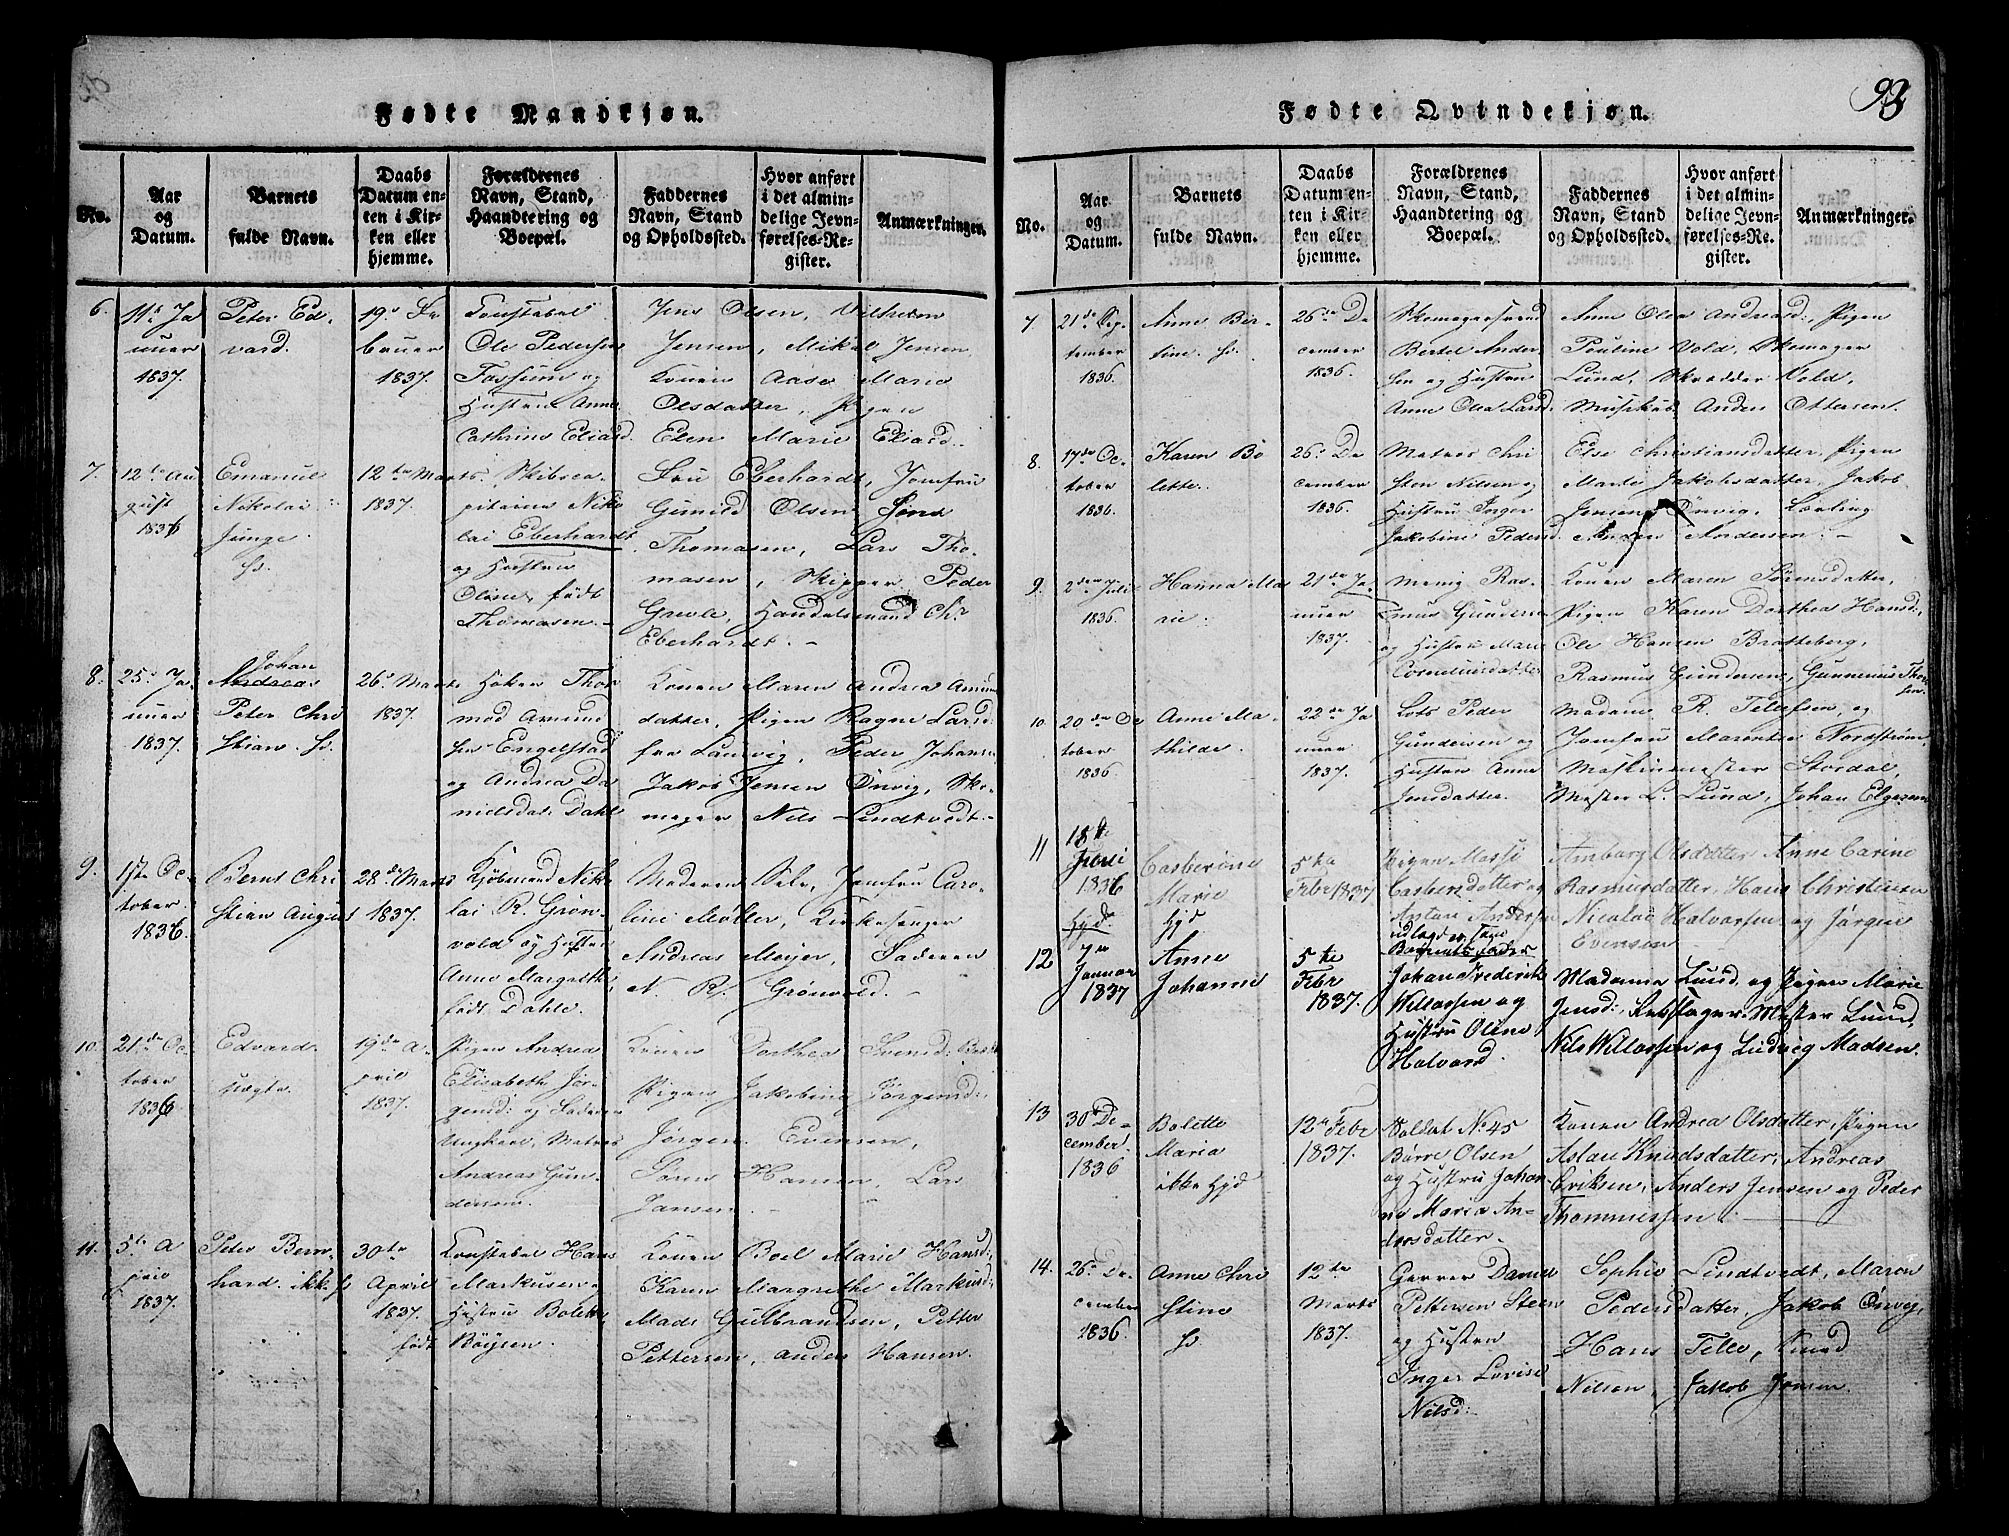 93
Fødte Mandkjøn.
No.
Aar
og
Datum.
Barnets
fulde Navn.
Daabs
Datum en-
ten i Kir-
ken eller
hjemme.
Forældrenes
Navn, Stand,
Haandtering og
Boepæl.
Faddernes
Navn, Stand
og Opholdssted.
Hvor anført
i det almin-
delige Jevn-
førelses-Re-
gister.
Anmærkninger.
6.
11te Ja
nuer
1837.
Peter Ed-
vard.
19de Fe
bruer
1837.
Constabel
Ole Pedersen
Fossum og
Hustru Anne
Cathrine Eliasd.
Jens Olsen, Vilhelm
Jensen, Mikal Jensen
Konen Aase Marie
Olsdatter, Pigen
Elen Marie Eliasd.
7.
12te Au
gust
1836
Emanuel
Nikolai
Junge.
Hj.
12te Marts
1837.
Skibsca-
pitaine Niko
lai Eberhardt
og Hustru
Oline, født
Thomasen.
Fru Eberhardt, Jomfru
Gunild Olsen, Jens
Thomasen, Lars Tho-
masen, Skipper Peder
Greve, Handelsmand Chr
Eberhardt.
8.
25de Ja
nuer
1837.
Johan
Andreas
Peter Chri
stian. Hj.
26de Marts
1837.
Høker Thor
mod Amund
sen Engelstad
og Andrea Da
nielsdat. Dahl
Konen Maren Andrea Amun
datter, Pigen Ragne Larsd:
fra Laurvig, Peder Johans:
Jakob Jensen Ørvig, Sko-
mager Nils Lindtvedt.
9.
1ste Oc-
tober
1836.
Bernt Chri
stian August
28de Marts
1837.
Kjøbmand Niko
lai R. Grøn-
vold og Hustru
Anne Margrethe,
født Dahle.
Moderen Selv, Jomfru Caro-
line Møller, Kirkesanger
Andreas Meyer, Faderen
N. R. Grønvold.
10.
21de Oc
tober
1836
Edvard.
uægte.
19de A-
pril
1837.
Pigen Andrea
Elisabeth Jør-
gensd: og Faderen
Ungkarl, Matros
Andreas Gun-
dersen.
Konen Dorthea Svensd:
Pigen Jakobine Jørgensd:,
Jørgen Evensen,
Søren Hansen, Lars
Jansen.
11.
5te A
pril
1837.
Peter Bern-
hard. ikke hj
30te
April
1837.
Constabel Hans
Markusen og
Hustru Bolette,
født Böysen.
Konen Boel Marie Hansd:,
Karen Margrethe Markusd:
Mads Gulbrandsen, Petter
Pettersen, Anders Hansen.
Fødte Qvindekjøn.
No.
Aar
og
Datum.
Barnets
fulde Navn.
Daabs
Datum en-
ten i Kir-
ken eller
hjemme.
Forældrenes
Navn, Stand,
Haandtering og
Boepæl.
Faddernes
Navn, Stand
og Opholdssted.
Hvor anført
i det almin-
delige Jevn-
førelses-Re-
gister.
Anmærkninger.
7
21de Sep-
tember
1836
Anne Ber-
tine. Hj.
26de De
cember
1836.
Skomagersvend
Bertel Ander
sen og Hustru
Anne Olea Larsd:
Anne Olea Andreasd:, Pigen
Pauline Vold, Skomager
Lund, Skrædder Vold,
Musikus Anders Ottersen.
8.
17de Oc-
tober
1836.
Karen Bo
lette.
26de De
cember
1836.
Matros Chri
sten Nilsen og
Hustru Inger
Jakobine Pedersd.
Else Christiansdatter, Pigen
Marte Jakobsdatter, Jakob
Jensen Ørvig, Lærling
Anders Andersen.
9.
2den Juli
1836.
Hanna Ma
rie.
21de Ja-
nuer
1837.
Menig Ras-
mus Gunderse
og Hustru Marie
Corneliusdatter
Konen Maren Sørensdatter,
Pigen Karen Dorthea Hansd:,
Ole Hansen Bratteberg,
Rasmus Gundersen, Gunnenius Thom
sen.
10.
20de Oc
tober
1836
Anne Ma-
thilde.
22de Ja
nuer
1837.
Lots Peder
Gundersen og
Hustru Anne
Jensdatter.
Madam R. Tellefsen, og
Jomfru Marentse Nordstrøm,
Maskinmester Stordal,
Mester L. Lund, Johan Elgesem
11
18de
Juni
1836
Hjd.
Casberine
Marie
Hjd
5te
Febr 1837
Pigen Massi
Caspersdatter og
Antan Andersen
udlagd er som
Barnets Fader
Amborg Olsdatter Anne Carine
Rasmusdatter, Hans Christiansen
Nicolai Halvorsen og Jørgen
Evensen
12
7de
Januar
1837
Anne
Johanne
5te
Febr
1837.
Johan Frederik
Willassen og
Hustru Oline
Halvorsd.
Madame Lund og Pigen Marie
Jensd:, Rebslager Mester Lund,
Nils Willassen og Ludvig Madsen.
13
30te De-
cember
1836
Bolette
Maria
ikke hjd
12te Febr
1837.
Soldat No 45
Børre Olsen
og Hustru Johan-
ne Maria An-
dersdatter.
Konen Andrea Olsdatter, Pigen
Aslau Knudsdatter, Andreas
Eriksen, Anders Jensen og Peder
Thommessen
14.
26de De-
cember
1836.
Anne Chri
stine
Hj.
12te
Marts
1837.
Garver Daniel
Pettersen Steen
og Hustru
Inger Lovise
Nilsd:
Sophie Lindtvedt, Maren
Pedersdatter, Jakob Ørvig,
Hans Telle, Knud
Nilsen, Jakob Jensen.